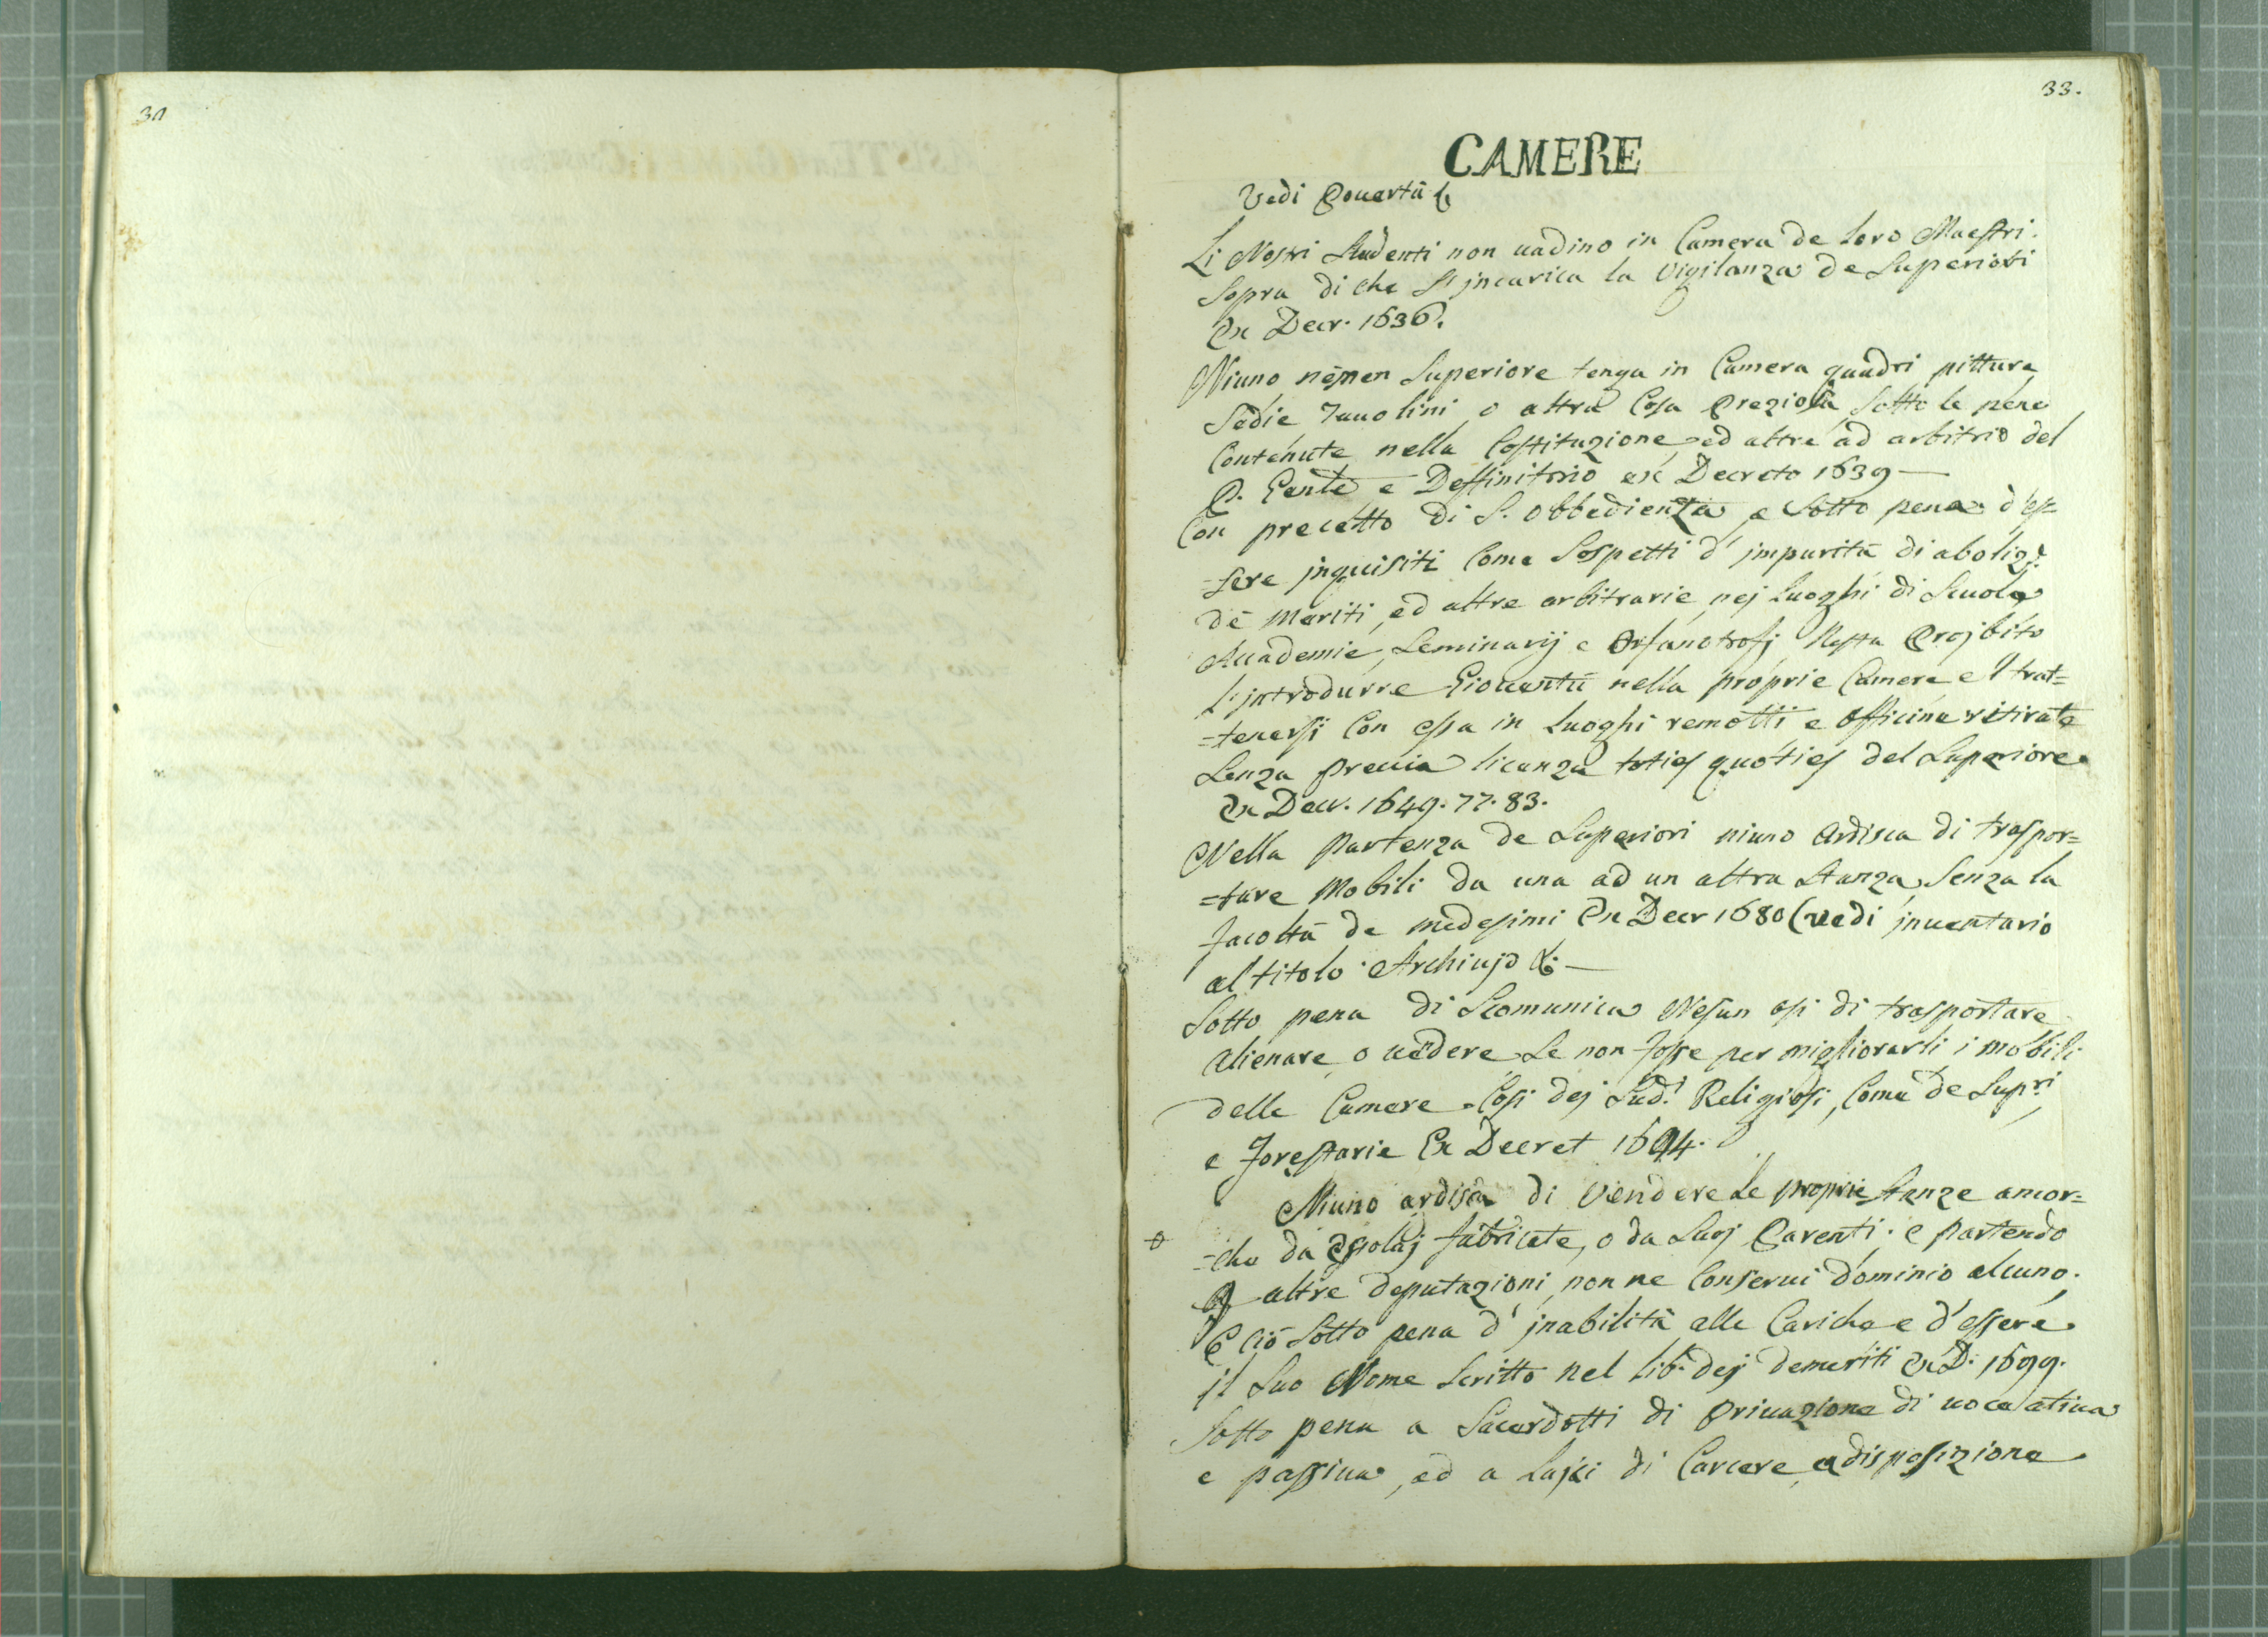 31
33.
CAMERE
Vedi Pouertà &
Li Nostri Studenti non uadino in Camera de loro Maestri.
Sopra di che S'jncarica la Vigilanza de Superiori
Ex Decr. 1636.
Niuno nēmen Superiore tenga in Camera quadri pitture
Sedie Tauolini, o altra Cosa Preziosa Sotto le pene
Contenute nella Costituzione, ed altre ad arbitrio del
P. Gen̄le e Deffinitorio ex Decreto 1639 —
Con precetto di S. obbedienza, e Sotto pena d'es=
=sere jnquisiti Come Sospetti d'jmpurità di aboliz.e
de meriti, ed altre arbitrarie nej Luoghi di Scuola
Accademie, Seminarij e Orfanotrofj Resta Projbito
l'jntrodurre Giouentù nella proprie Camere e l trat=
=tenersi Con essa in Luoghi remotti e officine ritirate
Senza preuia licenza toties quoties del Superiore.
Ex Decr. 1649. 77. 83.
Nella Partenza de Superiori niuno Ardisca di traspor=
=tare Mobili da una ad un altra Stanza, Senza la
facoltà de medesimi Ex Decr 1680 (vedi jnuentario
al titolo Archiujo &. —
Sotto pena di Scomunica Nesun osi di trasportare
Alienare, o uēdere Se non fosse per migliorarli i mobili
delle Camere. Così dej Sud.i Religiosi, Come de Sup.ri
e Forestarie Ex Decret 1694.
Niuno ardisca di Vendere Le proprie Stanze ancor=
=che da Essolaj fabricate, o da Suoj Parenti. e partendo
P altre deputazioni, non ne Conserui dominio alcuno.
E ciò Sotto pena d'jnabilità alle Cariche e d'essere
il Suo Nome Scritto nel lib. dej demeriti Ex D. 1699.
Sotto pena a Sacerdotti di Priuazione di uoce atiua
e passiua, ed a Lajci di Carcere, a disposizione